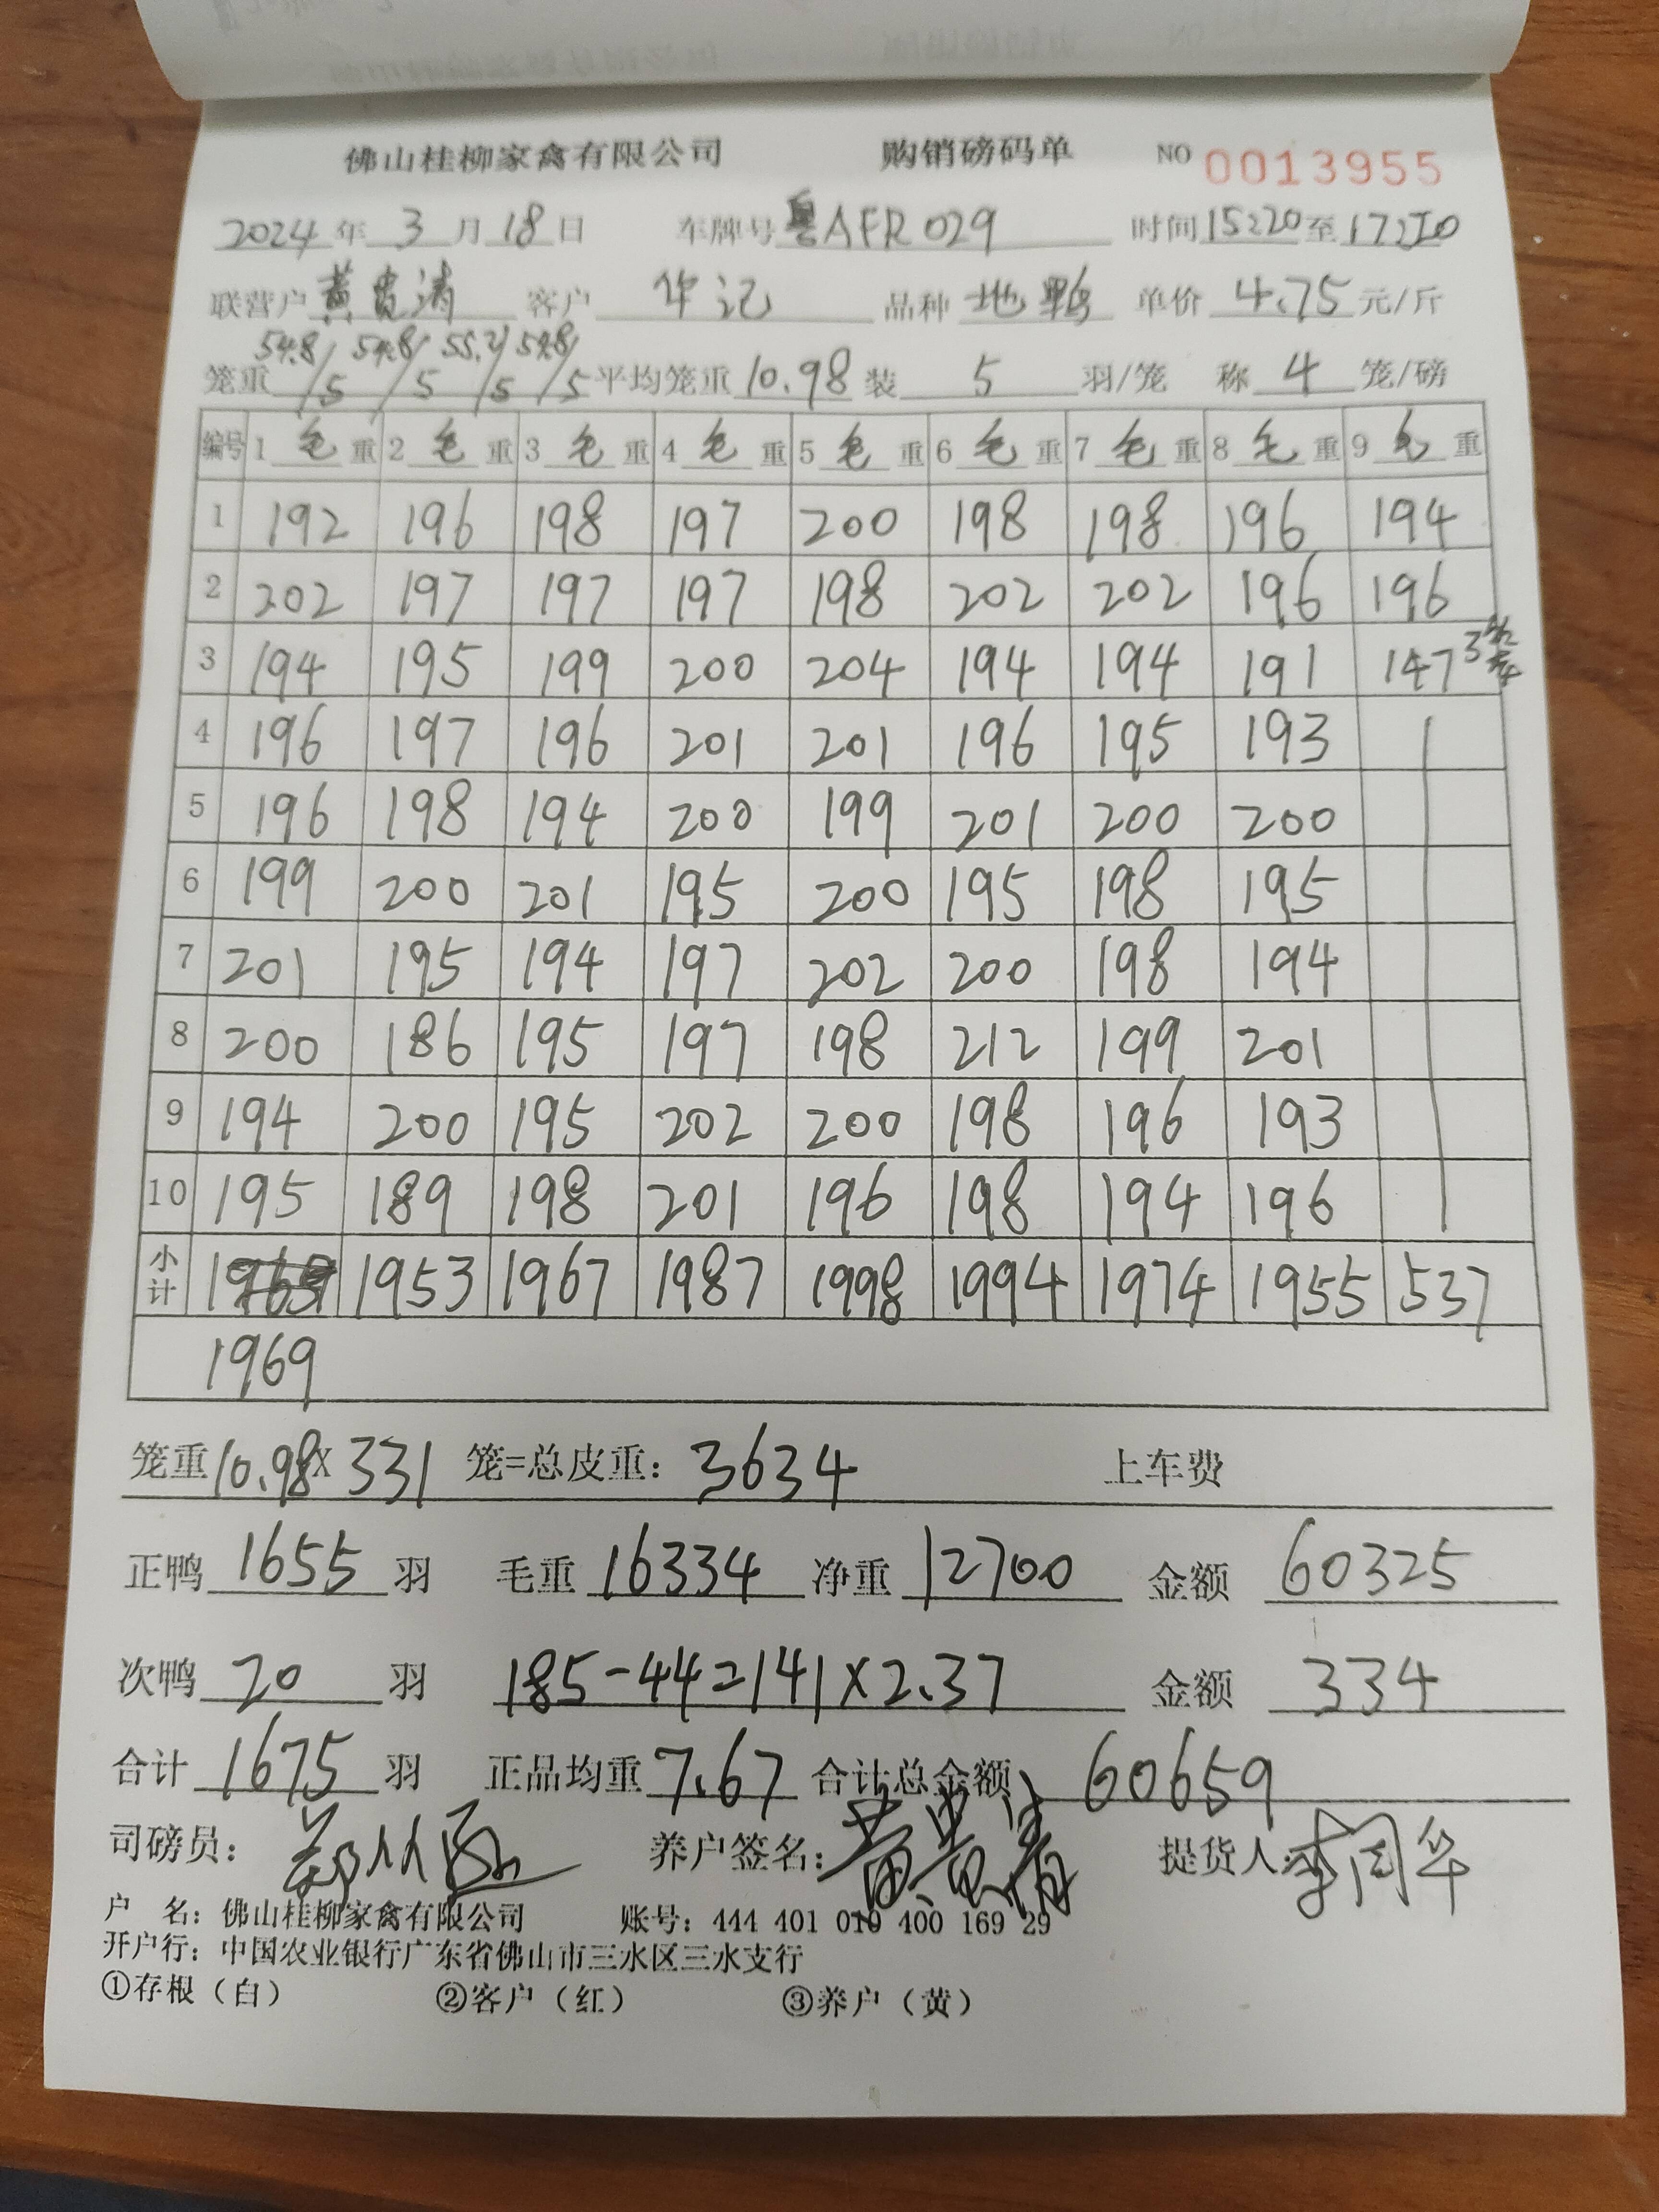 佛山桂柳家禽有限公司 购销磅码单 NO 0013955
2024年3月18日 车牌号 粤AFR029 时间15:20至17:20
联营户 黄贵清 客户 华记 品种 地鸭 单价 4.75 元/斤
笼重 54.8/5 54.8/5 55.2/5 54.8/5 平均笼重 10.98 装 5 羽/笼 称 4 笼/磅
编号 1 毛 重 2 毛 重 3 毛 重 4 毛 重 5 毛 重 6 毛 重 7 毛 重 8 毛 重 9 毛 重
1 192 196 198 197 200 198 198 196 194
2 202 197 197 197 198 202 202 196 196
3 194 195 199 200 204 194 194 191 147 3笼
4 196 197 196 201 201 196 195 193
5 196 198 194 200 199 201 200 200
6 199 200 201 195 200 195 198 195
7 201 195 194 197 202 200 198 194
8 200 186 195 197 198 212 199 201
9 194 200 195 202 200 198 196 193
10 195 189 198 201 196 198 194 196
小计 1953 1967 1987 1998 1994 1974 1955 537
1969
笼重 10.98 × 331 笼=总皮重: 3634 上车费
正鸭 1655 羽 毛重 16334 净重 12700 金额 60325
次鸭 20 羽 185-44=141×2.37 金额 334
合计 1675 羽 正品均重 7.67 合计总金额 60659
司磅员: 养户签名: 黄贵清 提货人: 李周华
户 名: 佛山桂柳家禽有限公司 账号: 444 401 010 400 169 29
开户行: 中国农业银行广东省佛山市三水区三水支行
①存根（白） ②客户（红） ③养户（黄）